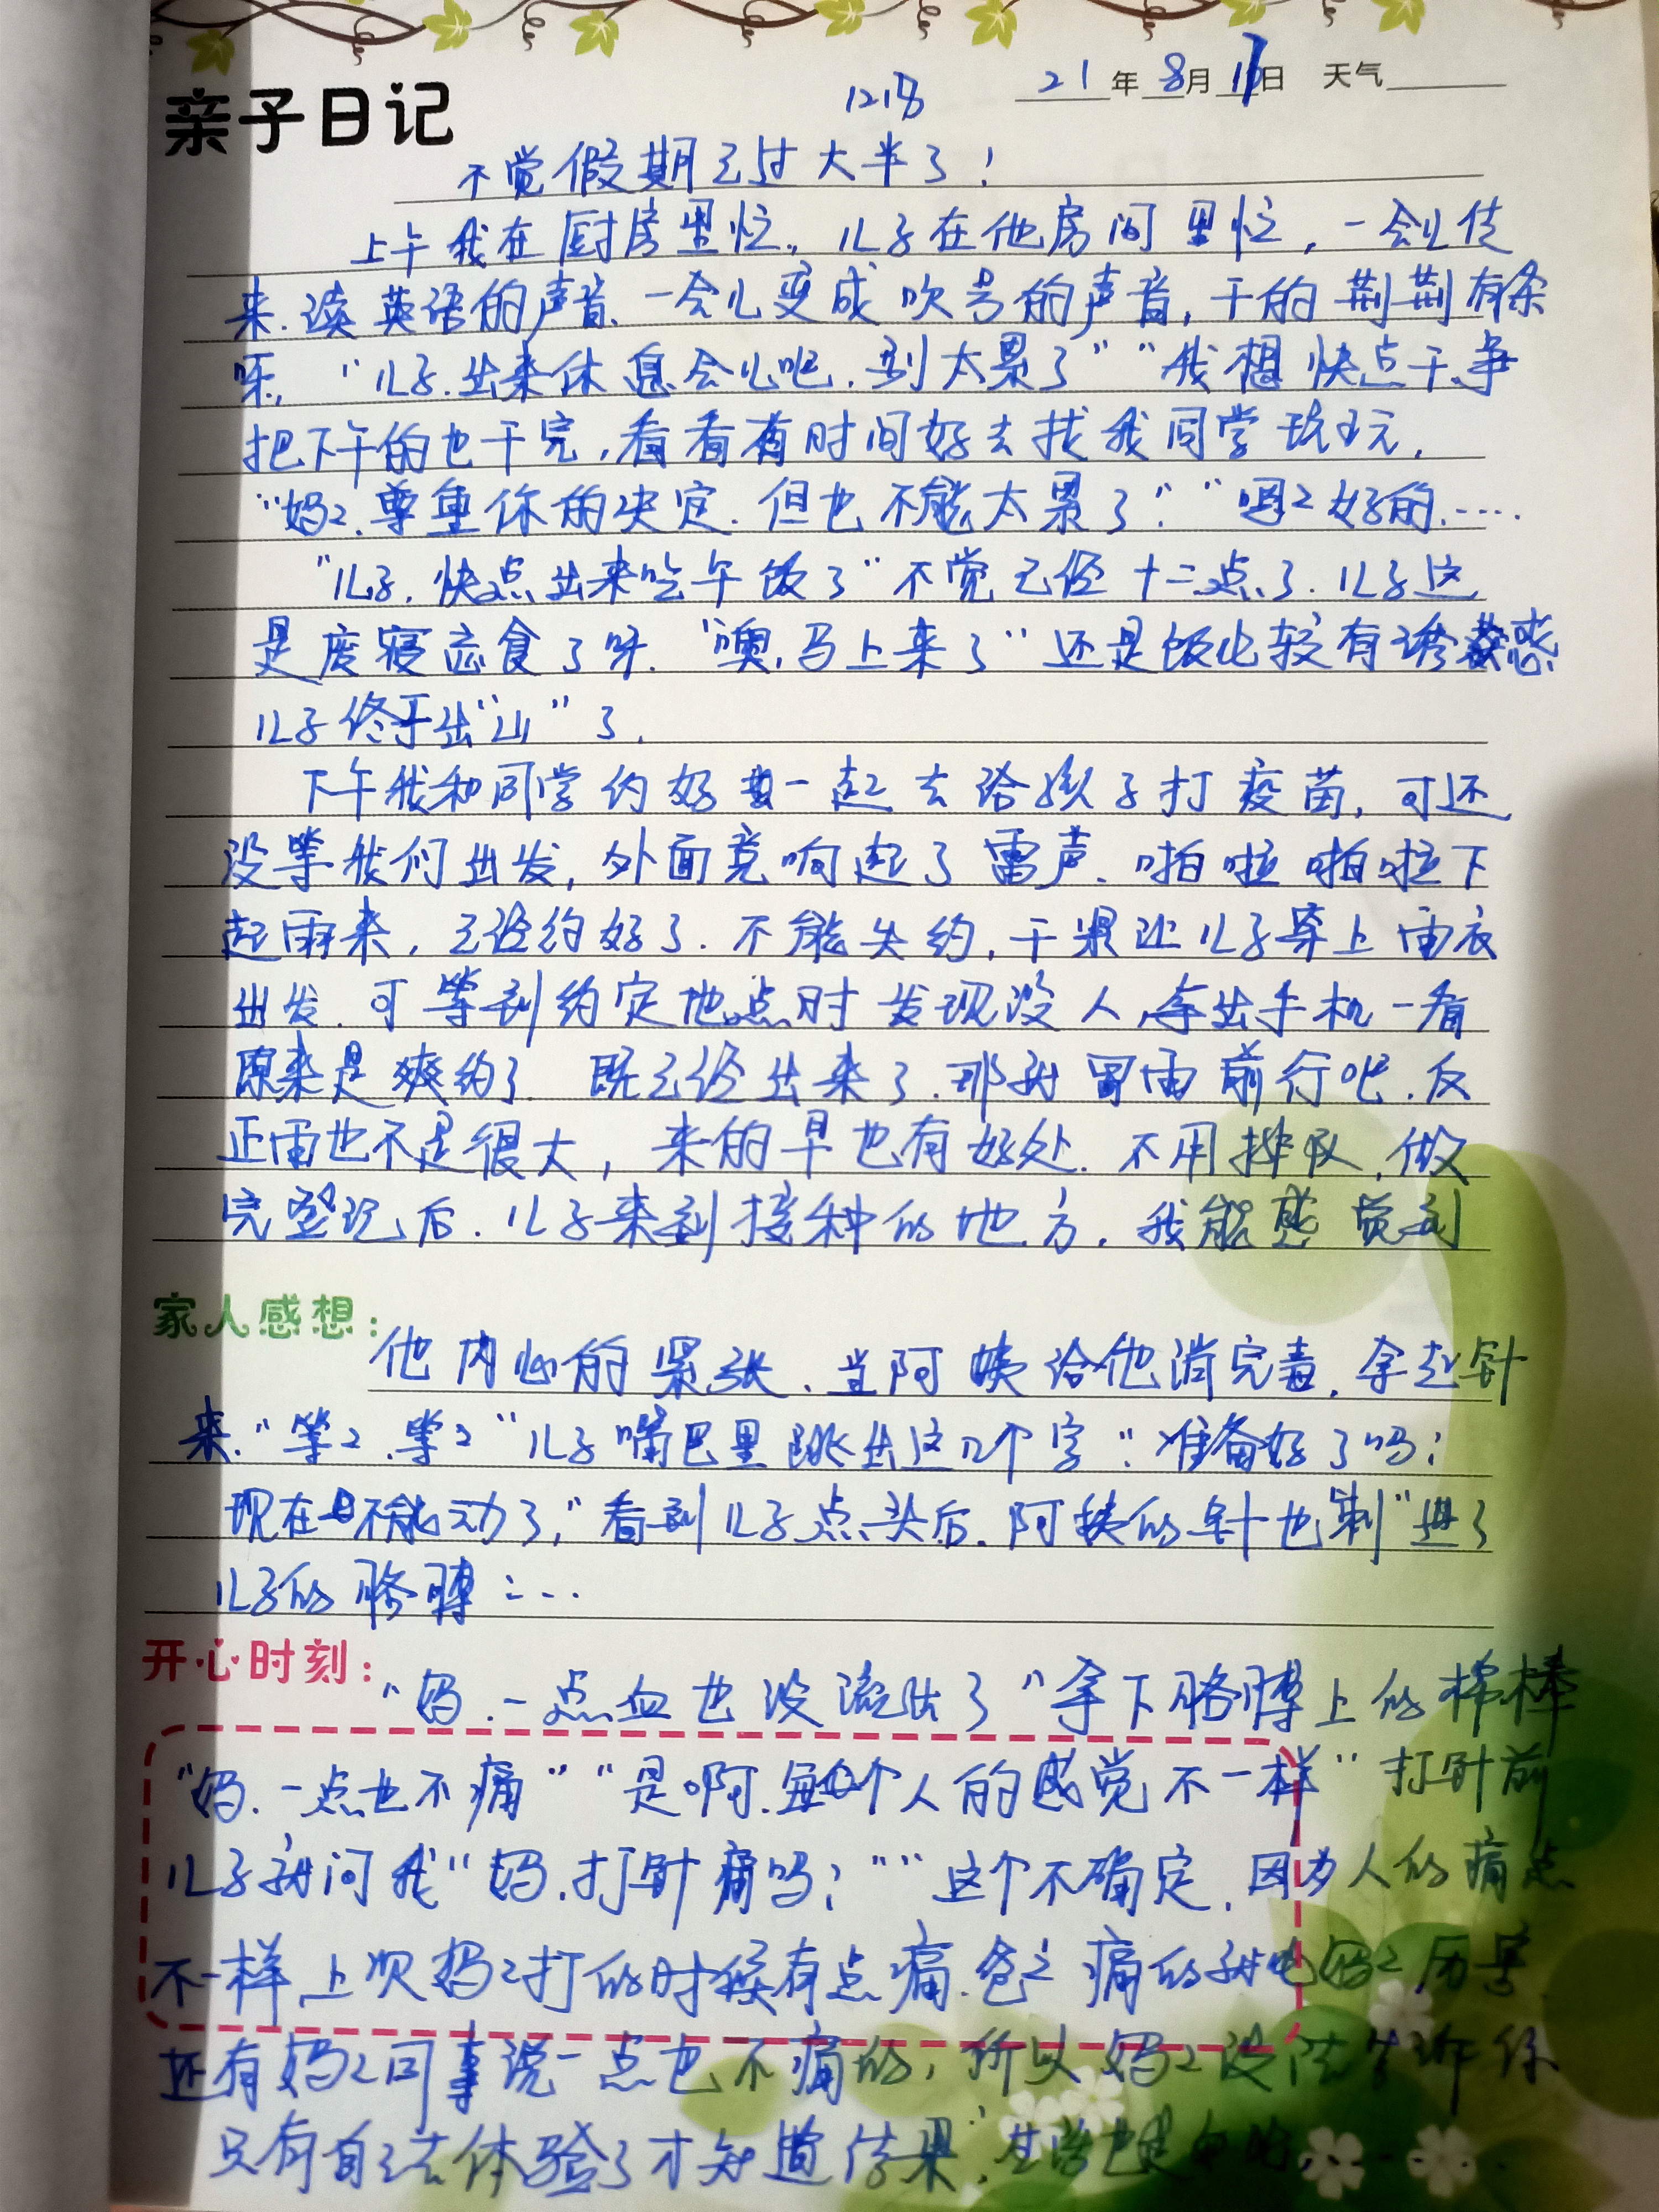 亲子日记
1218 21年8月17日 天气
不觉假期已过大半了!
上午我在厨房里忙,儿子在他房间里忙,一会儿传
来.读英语的声音、一会儿变成吹号的声音,干的荆荆有条
呀,“儿子.出来休息会儿吧.别太累了”“我想快点干.争
把下午的也干完,看看有时间好去找我同学玩玩,
“妈2.尊重你的决定.但也不能太累了”“嗯2好的.…
“儿子.快点出来吃午饭了”不觉已经十二点了.儿子这
是废寝忘食了呀.“噢,马上来了”还是饭比较有诱惑
儿子终于出“山”了.
下午我和同学约好一起去给孩子打疫苗,可还
没等我们出发,外面竟响起了雷声.啪啦啪啦下
起雨来,已经约好了.不能失约,于是让儿子穿上雨衣
出发.可等到约定地点时发现没人.拿出手机一看
原来是爽约了 既已经出来了.那就冒雨前行吧.反
正雨也不是很大,来的早也有好处.不用排队,做
完登记后.儿子来到接种的地方.我能感觉到
家人感想:
他内心的紧张.当阿姨给他消完毒.拿起针
来.“等2.等2”儿子嘴巴里跳出这几个字“准备好了吗?
现在不能动了,”看到儿子点头后.阿姨的针也“刺”进了
儿子的胳膊:…
开心时刻:
“妈.一点血也没流出了”拿下胳膊上的棉棒
“妈.一点也不痛”“是啊.每个人的感觉不一样”打针前
儿子就问我“妈.打针痛吗?”“这个不确定.因为人的痛点
不一样.上次妈2打的时候有点痛.爸2痛的就比妈2历害.
还有妈2同事说一点也不痛的,所以妈2没法告诉你
只有自己去体验了才知道结果,”